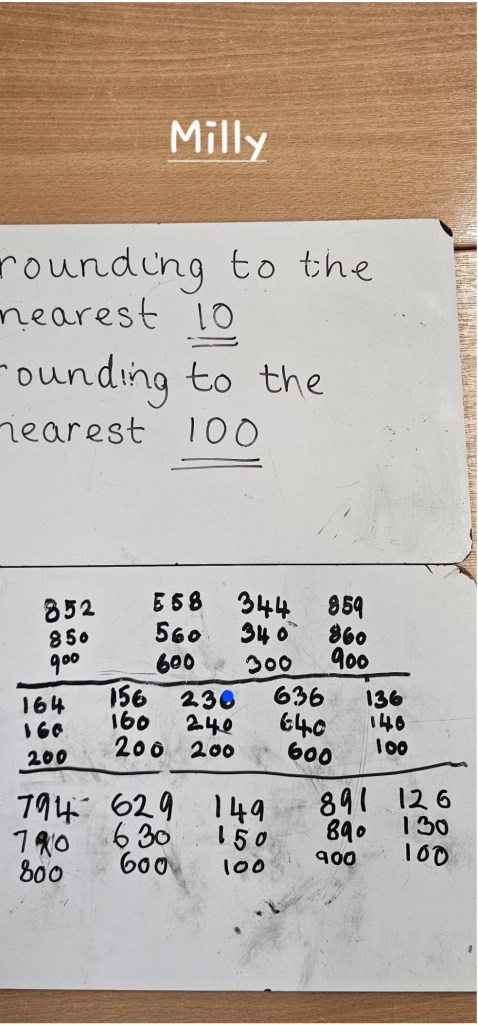 Milly
rounding to the
nearest 10
rounding to the
nearest 100
852 558 344 859
850 560 340 860
900 600 300 900
164 156 636 136
160 160 240 640 140
200 200 200 600 100
794 629 149 891 126
790 630 150 890 130
800 600 100 900 100